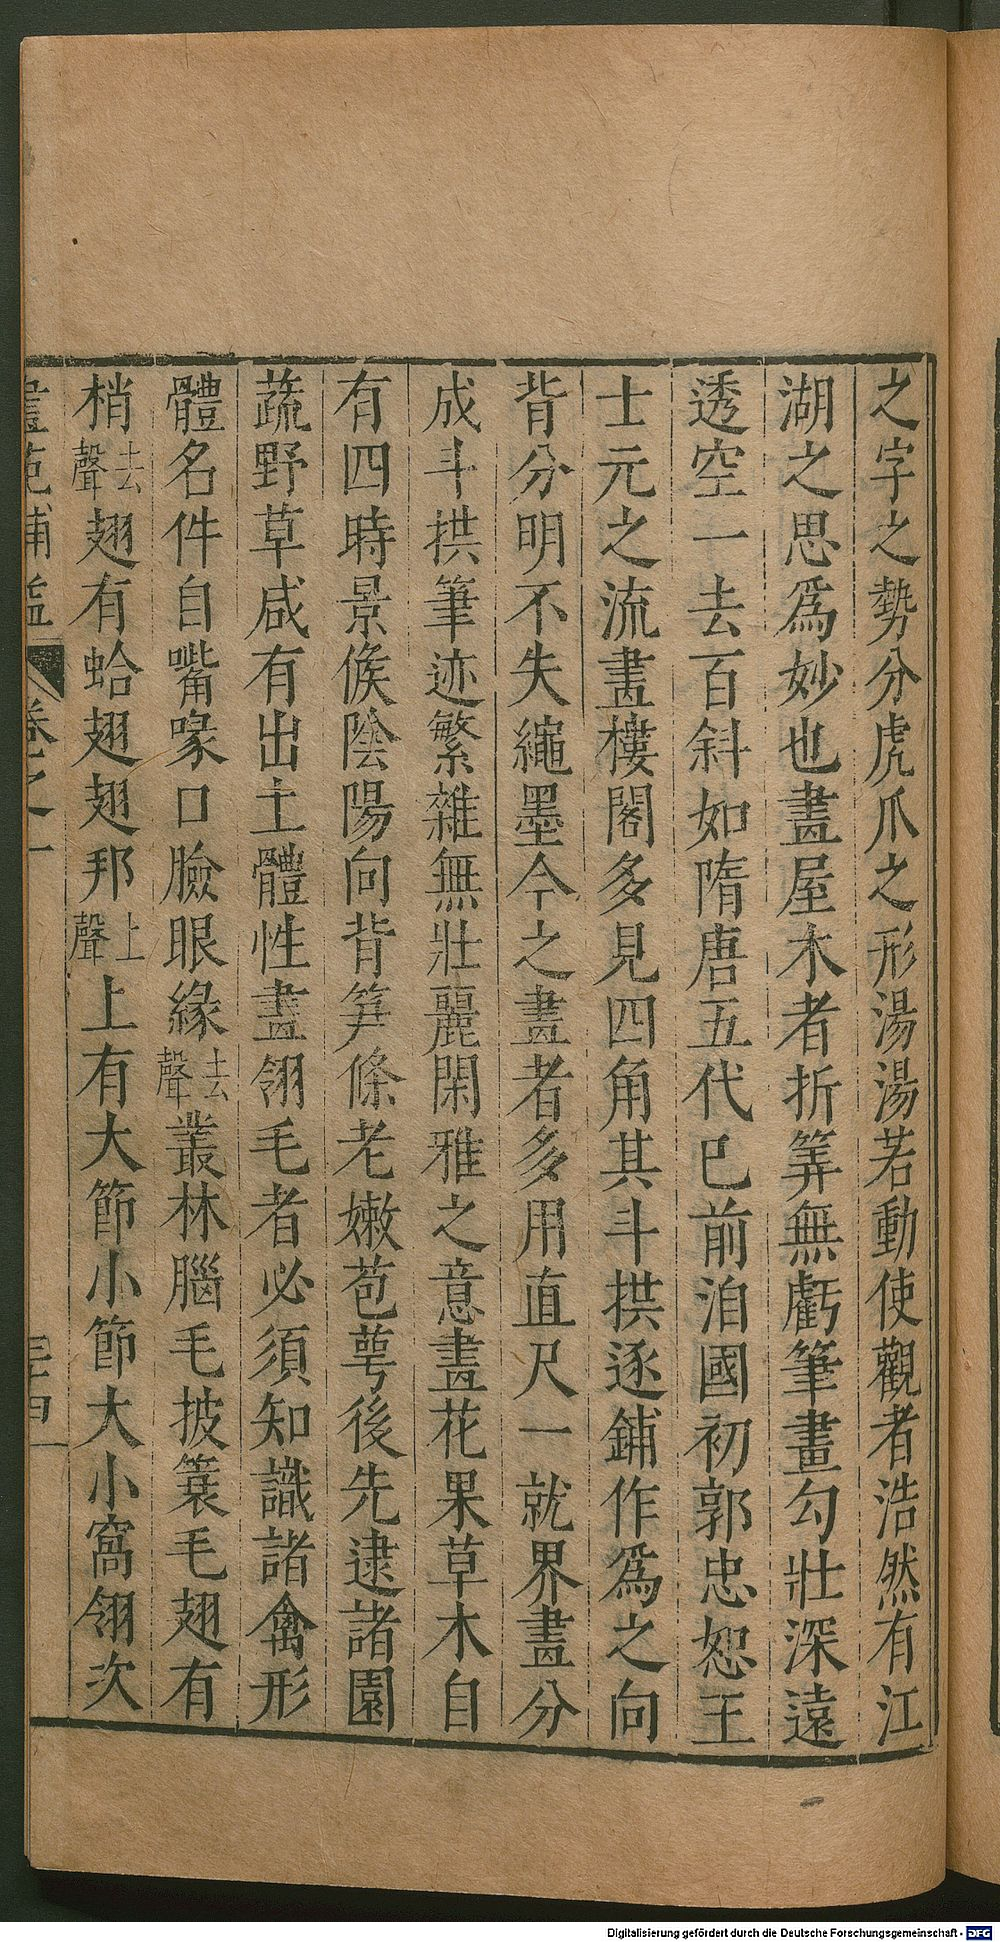 之字之勢分虎爪之形湯湯若動使觀者浩然有江
湖之思爲妙也畫屋木者折筭無虧筆畫勾壯深遠
透空一去百斜如隋唐五代已前洎國初郭忠恕王
士元之流畫樓閣多見四角其斗拱逐鋪作爲之向
背分明不失繩墨今之畫者多用直尺一就界畫分
成斗拱筆迹繁雜無壯麗閑雅之意畫花果草木自
有四時景候陰陽向背笋條老嫩苞萼後先逮諸園
蔬野草咸有出土體性畫翎毛者必須知識諸禽形
體名件自嘴喙口臉眼緣去聲叢林腦毛披蓑毛翅有
梢去聲翅有蛤翅翅邦上聲上有大節小節大小窩翎次
畫苑補益 卷之一 三十四
Digitalisierung gefördert durch die Deutsche Forschungsgemeinschaft - DFG